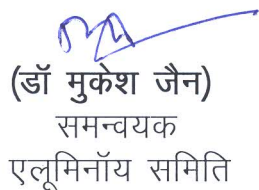 (डॉ मुकेश जैन)
समन्वयक
एलूमिनॉय समिति